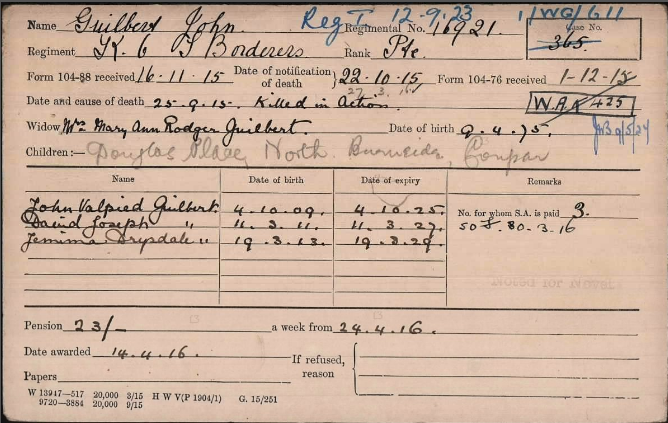 Name Guilbert John. Reg I 12.9.23 11/WG/611
Regiment K. O S Borderers Regimental No. 16921. Case No. 365.
Rank Pte.
Form 104-88 received 16-11-15 Date of notification of death } 22.10.15 Form 104-76 received 1-12-15
27.3.16
Date and cause of death 25-9-15. Killed in Action. W.A.K +25
Widow, Mrs Mary Ann Rodger Guilbert. Date of birth 9.4.75.
Children:— Douglas Place, North Burnside, Coupar
Name Date of birth Date of expiry Remarks
John Valpied Guilbert. 4.10.09. 4.10.25. No. for whom S.A. is paid 3.
David Joseph " 11.3.11. 11.3.27. 30.3.16
Jemima Drysdale " 19.3.13. 19.3.29.
Pension 23/- a week from 24.4.16.
Date awarded 14.4.16. If refused, reason
Papers
W 13947—517 20,000 3/15 H W V(P 1904/1) G. 15/251
9720—3884 20,000 9/15